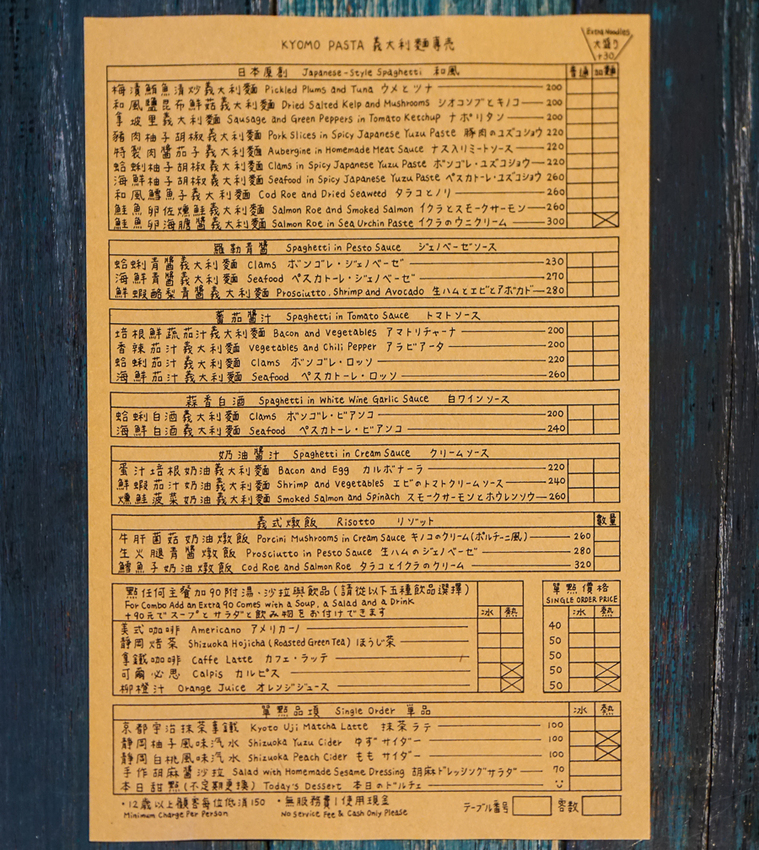 KYOMO PASTA 義大利麵專売
Extra Noodles
大盛り
+30
日本原創 Japanese-Style Spaghetti 和風 普通 加麵
梅漬鮪魚清炒義大利麵 Pickled Plums and Tuna ウメとツナ 200
和風鹽昆布鮮菇義大利麵 Dried Salted Kelp and Mushrooms シオコンブとキノコ 200
拿坡里義大利麵 Sausage and Green Peppers in Tomato Ketchup ナポリタン 200
豬肉柚子胡椒義大利麵 Pork Slices in Spicy Japanese Yuzu Paste 豚肉のユズコショウ 220
特製肉醬茄子義大利麵 Aubergine in Homemade Meat Sauce ナス入りミートソース 220
蛤蜊柚子胡椒義大利麵 Clams in Spicy Japanese Yuzu Paste ボンゴレ・ユズコショウ 220
海鮮柚子胡椒義大利麵 Seafood in Spicy Japanese Yuzu Paste ペスカトーレ・ユズコショウ 260
和風鱈魚子義大利麵 Cod Roe and Dried Seaweed タラコとノリ 260
鮭魚卵佐燻鮭義大利麵 Salmon Roe and Smoked Salmon イクラとスモークサーモン 260
鮭魚卵海膽醬義大利麵 Salmon Roe in Sea Urchin Paste イクラのウニクリーム 300
羅勒青醬 Spaghetti in Pesto Sauce ジェノベーゼソース
蛤蜊青醬義大利麵 Clams ボンゴレ・ジェノベーゼ 230
海鮮青醬義大利麵 Seafood ペスカトーレ・ジェノベーゼ 270
鮮蝦酪梨青醬義大利麵 Prosciutto, Shrimp and Avocado 生ハムとエビとアボカド 280
蕃茄醬汁 Spaghetti in Tomato Sauce トマトソース
培根鮮蔬茄汁義大利麵 Bacon and Vegetables アマトリチャーナ 200
香辣茄汁義大利麵 Vegetables and Chili Pepper アラビアータ 200
蛤蜊茄汁義大利麵 Clams ボンゴレ・ロッソ 220
海鮮茄汁義大利麵 Seafood ペスカトーレ・ロッソ 260
蒜香白酒 Spaghetti in White Wine Garlic Sauce 白ワインソース
蛤蜊白酒義大利麵 Clams ボンゴレ・ビアンコ 200
海鮮白酒義大利麵 Seafood ペスカトーレ・ビアンコ 240
奶油醬汁 Spaghetti in Cream Sauce クリームソース
蛋汁培根奶油義大利麵 Bacon and Egg カルボナーラ 220
鮮蝦茄汁奶油義大利麵 Shrimp and Vegetables エビのトマトクリームソース 240
燻鮭菠菜奶油義大利麵 Smoked Salmon and Spinach スモークサーモンとホウレンソウ 260
義式燉飯 Risotto リゾット 數量
牛肝菌菇奶油燉飯 Porcini Mushrooms in Cream Sauce キノコのクリーム(ポルチーニ風) 260
生火腿青醬燉飯 Prosciutto in Pesto Sauce 生ハムのジェノベーゼ 280
鱈魚子奶油燉飯 Cod Roe and Salmon Roe タラコとイクラのクリーム 320
點任何主餐加90附湯、沙拉與飲品(請從以下五種飲品選擇)
For Combo Add an Extra 90 Comes with a Soup, a Salad and a Drink
+90元でスープとサラダと飲み物をお付けできます 冰 熱
單點價格
SINGLE ORDER PRICE
冰 熱
美式咖啡 Americano アメリカーノ 40
靜岡焙茶 Shizuoka Hojicha (Roasted Green Tea) ほうじ茶 50
拿鐵咖啡 Caffe Latte カフェ・ラッテ 50
可爾必思 Calpis カルピス 50
柳橙汁 Orange Juice オレンジジュース 50
單點品項 Single Order 単品 冰 熱
京都宇治抹茶拿鐵 Kyoto Uji Matcha Latte 抹茶ラテ 100
靜岡柚子風味汽水 Shizuoka Yuzu Cider ゆずサイダー 100
靜岡白桃風味汽水 Shizuoka Peach Cider もも サイダー 100
手作胡麻醬沙拉 Salad with Homemade Sesame Dressing 胡麻ドレッシングサラダ 70
本日甜點(不定期更換) Today's Dessert 本日のドルチェ
•12歲以上顧客每位低消150 •無服務費|使用現金
Minimum Charge Per Person No Service Fee & Cash Only Please
テーブル番号 客数